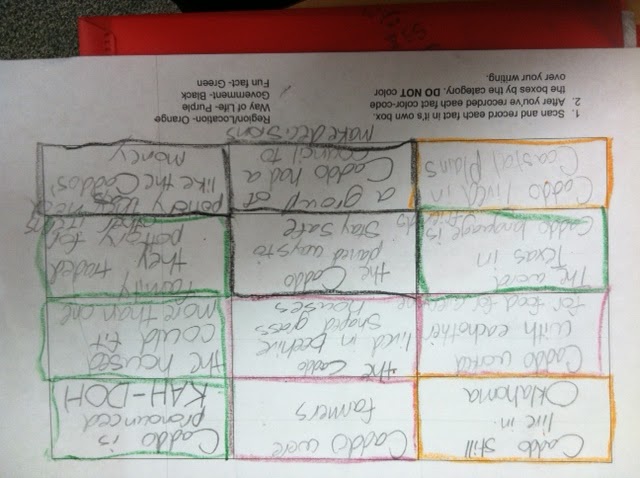 Caddo still
live in
Oklahoma
Caddo were
farmers
Caddo is
pronounced
KAH-DOH
Caddo work
with eachother
for food for
the Caddo
lived in beehive
shaped grass
houses
the houses
could fit
more than one
family
The word
Texas in
Caddo language is
friends
the Caddo
planed ways to
stay safe
they traded
pottery for
other items
Caddo lived in
Coastal Plains
a group of
Caddo had a
council to
make decisions
pottery was
like the Caddos'
money
1. Scan and record each fact in it's own box.
2. After you've recorded each fact color-code
the boxes by the category. DO NOT color
over your writing.
Region/Location- Orange
Way of Life- Purple
Government- Black
Fun fact- Green